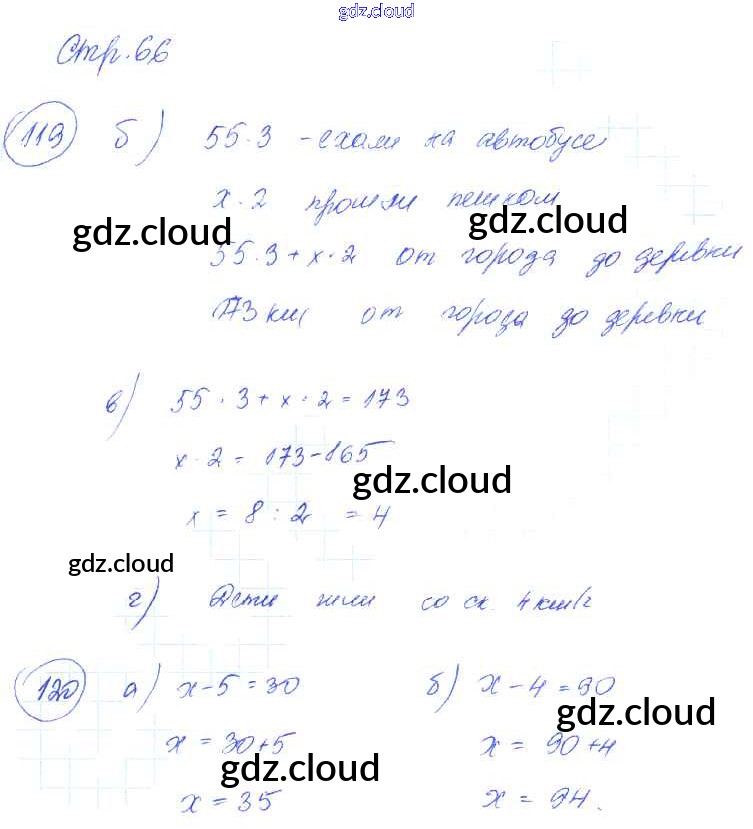 gdz.cloud
Стр. 66
119 б) 55·3 - ехали на автобусе
x·2 прошли пешком
gdz.cloud gdz.cloud
55·3+x·2 от города до деревни
173 км от города до деревни
в) 55·3+x·2=173
x·2=173-165
gdz.cloud
x=8:2=4
gdz.cloud
г) Дети шли со ск. 4 км/г
120 а) x-5=30 б) x-4=90
gdz.cloud
x=30+5 x=90+4
gdz.cloud
x=35 x=94.